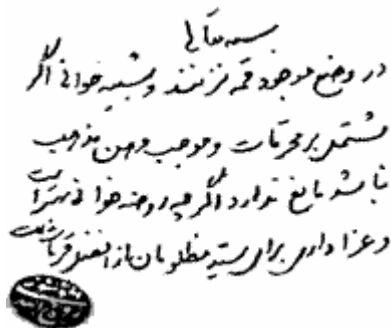 بسمه تعالی
در وضع موجود قمه نزنند و شبیه خوانی اگر
مشتمل بر محرمات و موجب وهن مذهب
نباشد مانع ندارد اگر چه روضه خوانی بهتر است
و عزاداری برای سید مظلومان از افضل قربات است